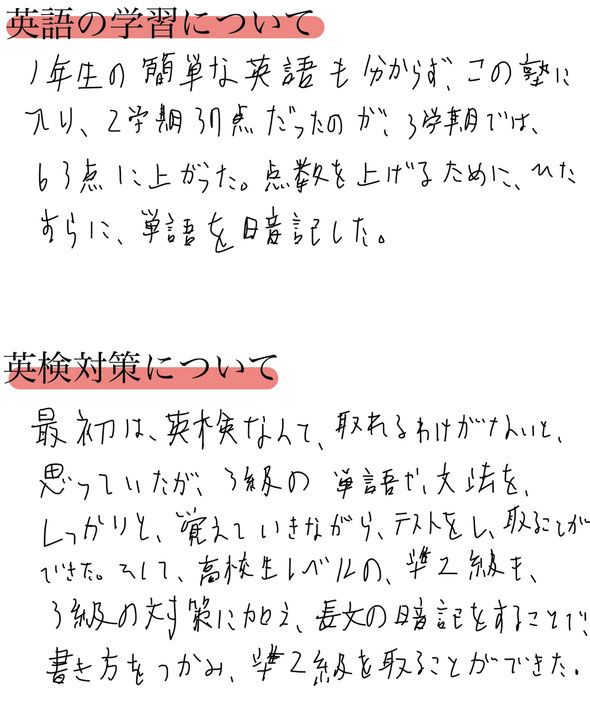 英語の学習について
1年生の簡単な英語も分からず、この塾に
入り、2学期37点だったのが、3学期では、
63点に上がった。点数を上げるために、ひた
すらに、単語を暗記した。
英検対策について
最初は、英検なんて、取れるわけがないと、
思っていたが、3級の単語や、文法を、
しっかりと、覚えていきながら、テストをし、取ることが
できた。そして、高校生レベルの、準2級も、
3級の対策に加え、長文の暗記をすることで、
書き方をつかみ、準2級を取ることができた。